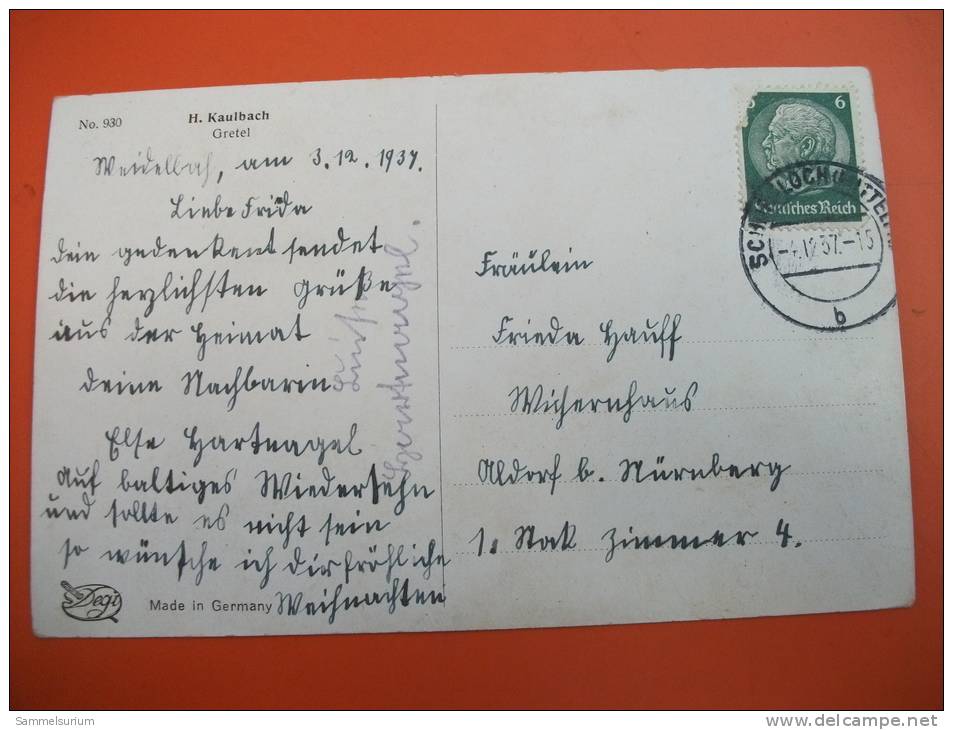 No. 930
H. Kaulbach
Gretel
Weidelbach, am 3.12.1937.
Liebe Frida
dein gedenkent sendet
die herzlichsten Grüße
aus der Heimat
deine Nachbarin
Else Hartnagel
auf baltiges Wiedersehn
und sollte es nicht sein
so wünsche ich dir fröhliche
Weihnachten
Hartnagel.
Degi
Made in Germany
6
Deutsches Reich
-4.12.37.-15
b
Fräulein
Frieda Hauff
Wichernhaus
Aldorf b. Nürnberg
1. Stak Zimmer 4.
Sammelsurium
www.delcampe.net